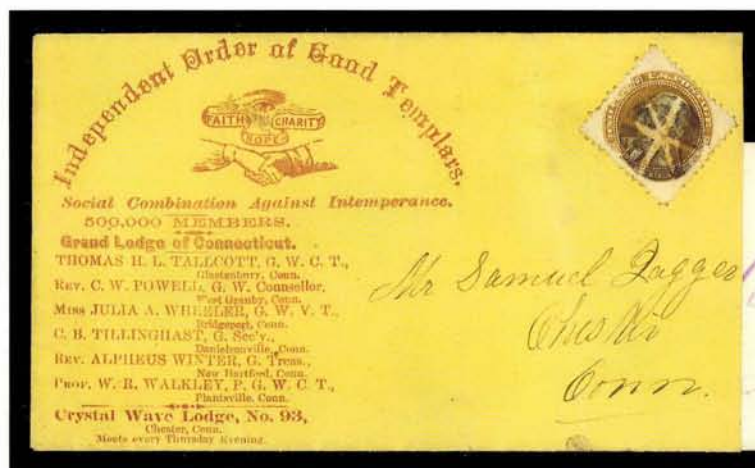 Independent Order of Good Templars.
FAITH CHARITY
HOPE
Social Combination Against Intemperance.
500,000 MEMBERS.
Grand Lodge of Connecticut.
THOMAS H. L. TALLCOTT, G. W. C. T.,
Glastenbury, Conn.
REV. C. W. POWELL, G. W. Counsellor,
West Granby, Conn.
MISS JULIA A. WHEELER, G. W. V. T.,
Bridgeport, Conn.
C. B. TILLINGHAST, G. Sec'y.,
Danielsonville, Conn.
REV. ALPHEUS WINTER, G. Treas.,
New Hartford, Conn.
PROF. W. R. WALKLEY, P. G. W. C. T.,
Plantsville, Conn.
Crystal Wave Lodge, No. 93,
Chester, Conn.
Meets every Thursday Evening.
Mr Samuel Jagger
Chester
Conn.